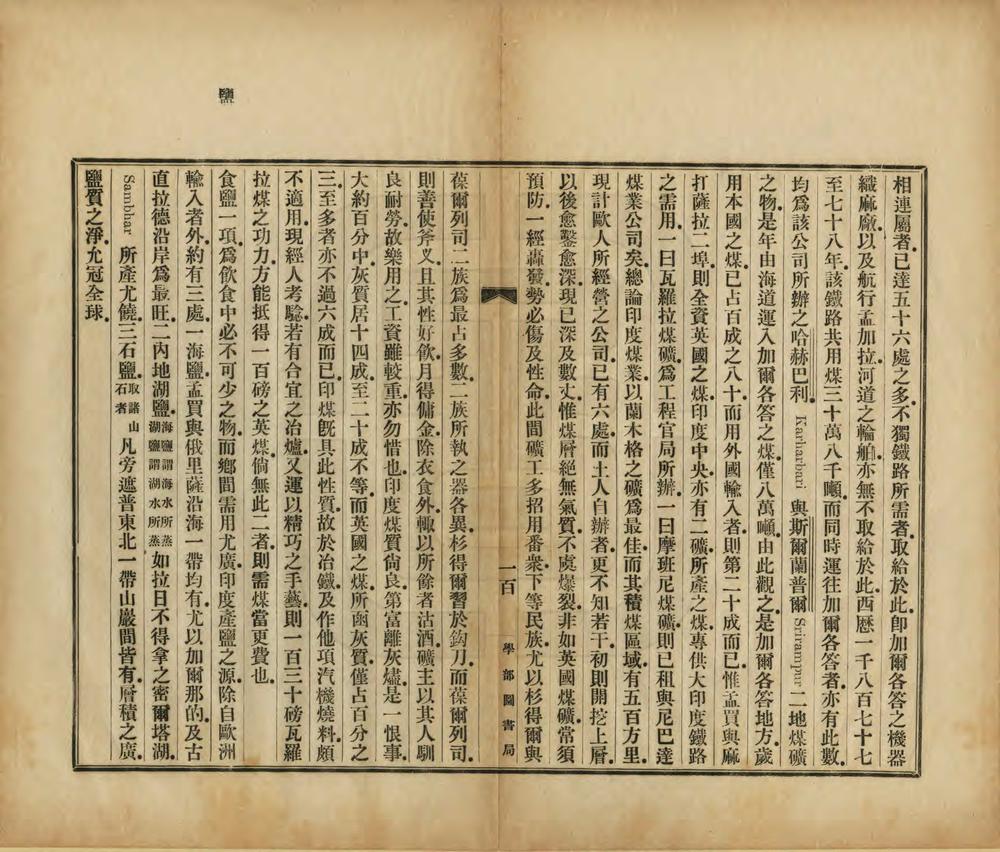 相連屬者已達五十六處之多不獨鐵路所需者取給於此卽加爾各答之機器
織麻廠以及航行孟加拉河道之輪舶亦無不取給於此西曆一千八百七十七
至七十八年該鐵路共用煤三十萬八千噸而同時運往加爾各答者亦有此數
均爲該公司所辦之哈赫巴利 Karharbari 與斯爾蘭普爾 Srirampur 二地煤礦
之物是年由海道運入加爾各答之煤僅八萬噸由此觀之是加爾各答地方歲
用本國之煤已占百成之八十而用外國輸入者則第二十成而已惟孟買與麻
打薩拉二埠則全資英國之煤印度中央亦有二礦所產之煤專供大印度鐵路
之需用一曰瓦羅拉煤礦爲工程官局所辦一曰摩班尼煤礦則已租與尼巴達
煤業公司矣總論印度煤業以蘭木格之礦爲最佳而其積煤區域有五百方里
現計歐人所經營之公司已有六處而土人自辦者更不知若干初則開挖上層
以後愈鑿愈深現已深及數丈惟煤層絕無氣質不虞爆裂非如英國煤礦常須
預防一經轟發勢必傷及性命此間礦工多招用番衆下等民族尤以杉得爾與
一百
學部圖書局
葆爾列司二族爲最占多數二族所執之器各異杉得爾習於鈎刀而葆爾列司
則善使斧又且其性好飮月得傭金除衣食外輒以所餘者沽酒礦主以其人馴
良耐勞故樂用之工資雖較重亦勿惜也印度煤質尙良第富離灰燼是一恨事
大約百分中灰質居十四成至二十成不等而英國之煤所函灰質僅占百分之
三至多者亦不過六成而已印煤旣具此性質故於冶鐵及作他項汽機燒料頗
不適用現經人考驗若有合宜之冶爐又運以精巧之手藝則一百三十磅瓦羅
拉煤之功力方能抵得一百磅之英煤倘無此二者則需煤當更費也
鹽
食鹽一項爲飮食中必不可少之物而鄉間需用尤廣印度產鹽之源除自歐洲
輸入者外約有三處一海鹽孟買與俄里薩沿海一帶均有尤以加爾那的及古
直拉德沿岸爲最旺二內地湖鹽海鹽謂海水所蒸湖鹽謂湖水所蒸如拉日不得拿之密爾塔湖
Sambhar 所產尤饒三石鹽取諸山石者凡旁遮普東北一帶山巖間皆有層積之廣
鹽質之淨尤冠全球